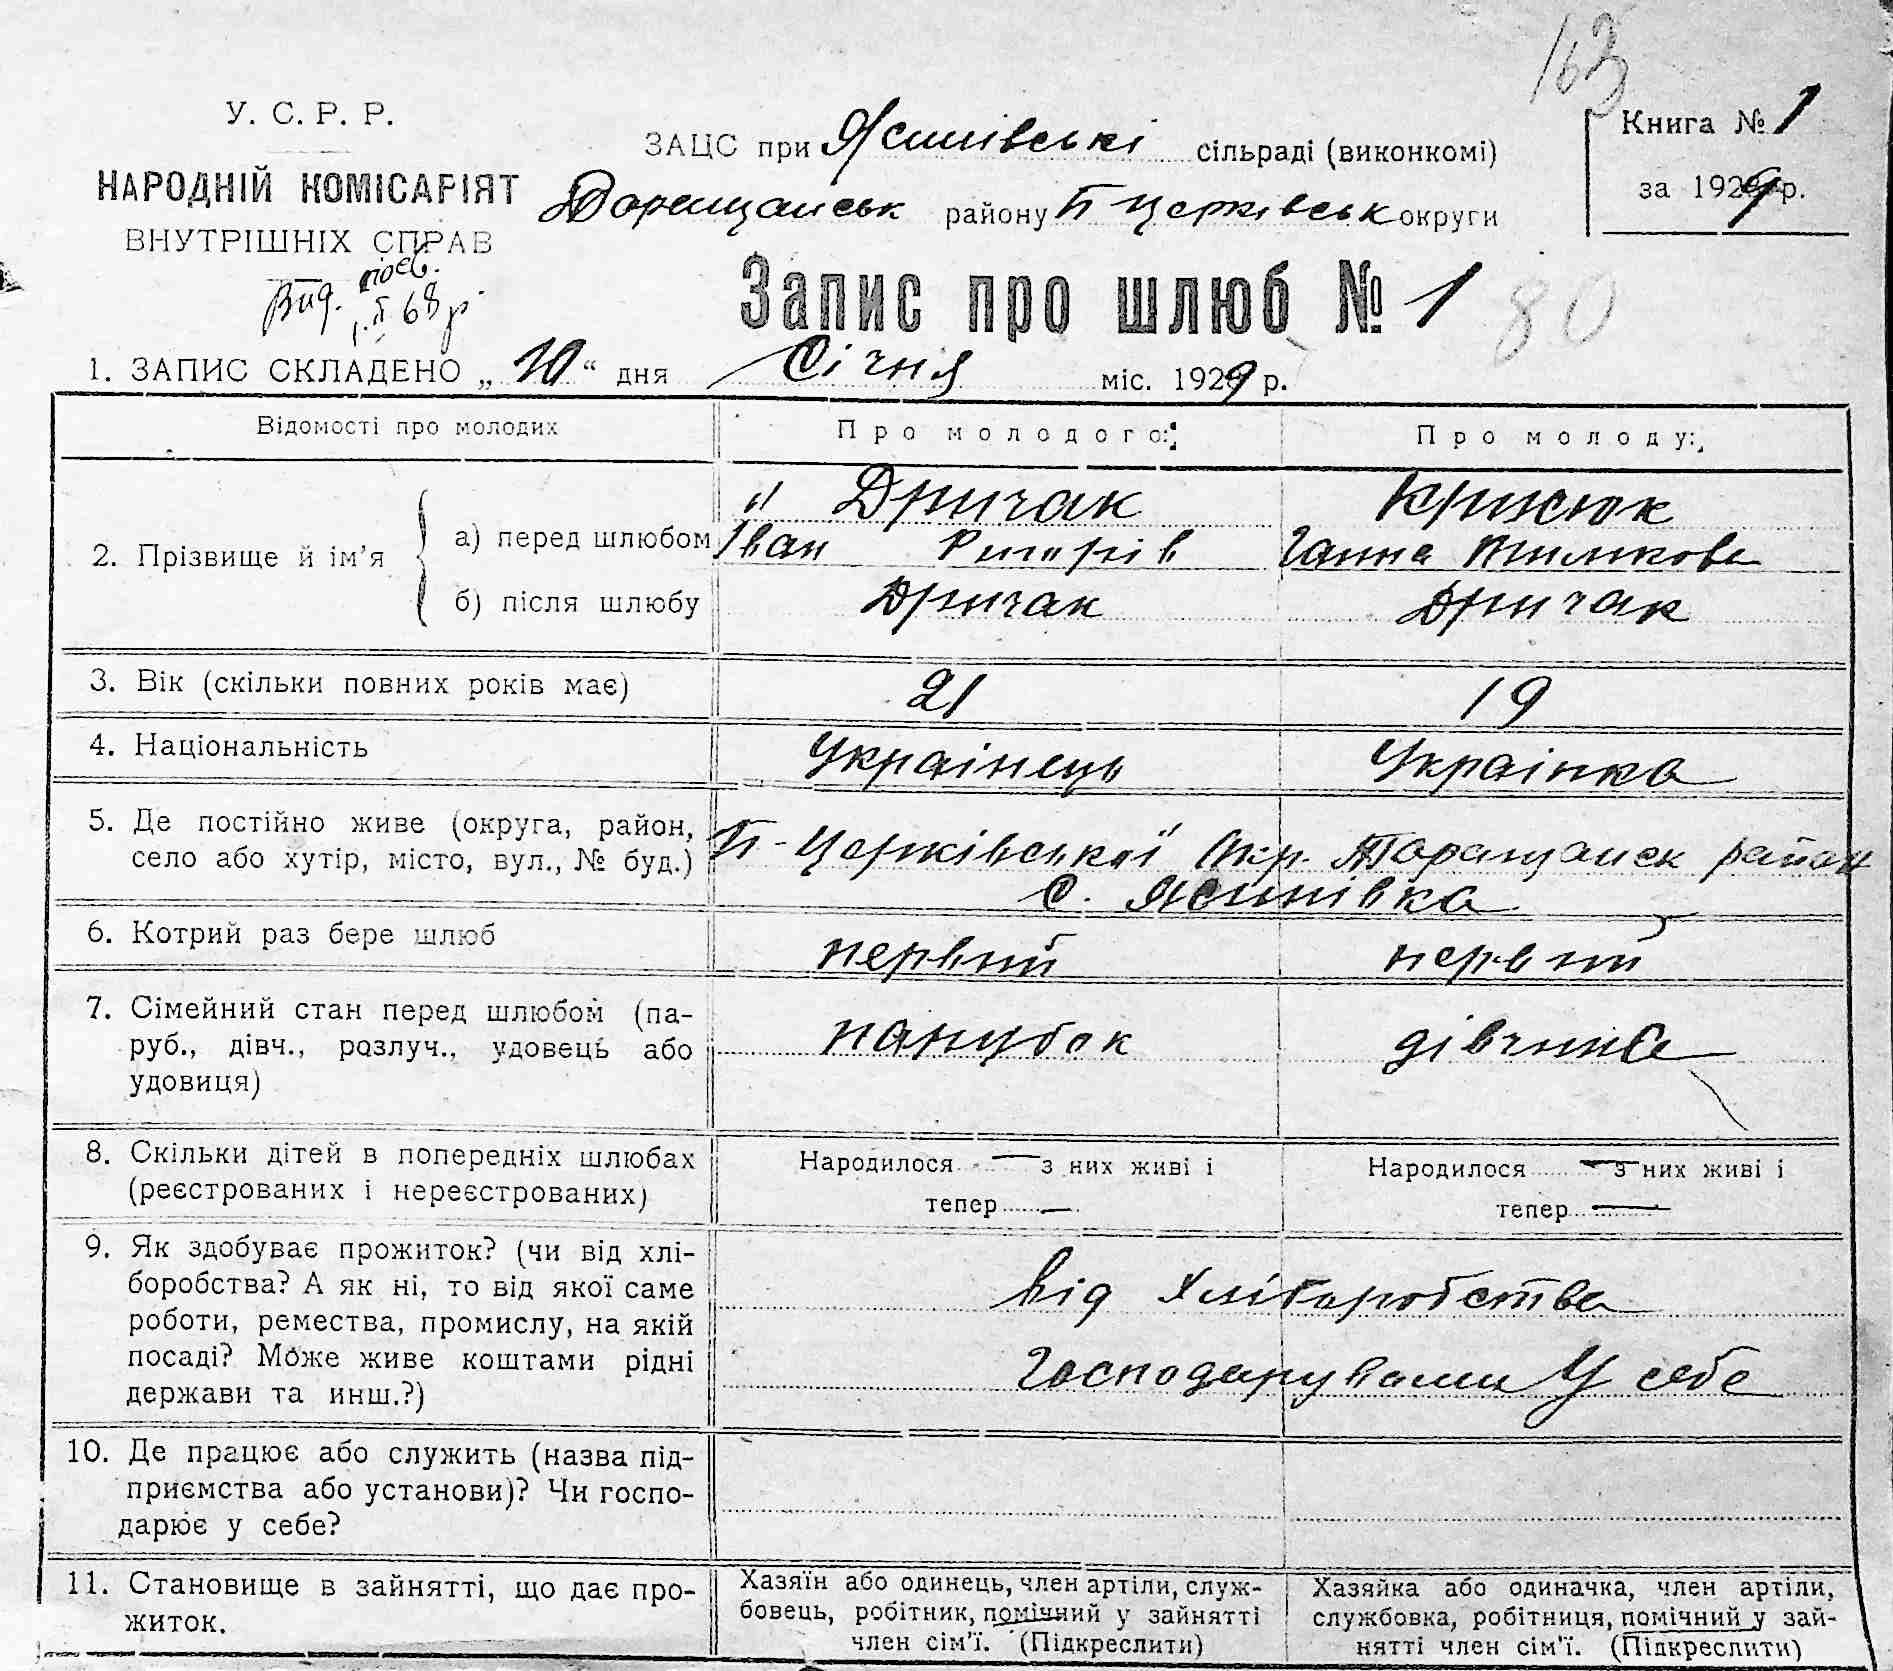 163
У. С. Р. Р.
НАРОДНІЙ КОМІСАРІЯТ
ВНУТРІШНІХ СПРАВ
Вид. посв.
68 р
ЗАЦС при Ясинівські сільраді (виконкомі)
Таращанськ району Б Церківськ округи
Книга № 1
за 1929 р.
Запис про шлюб № 1
80
1. ЗАПИС СКЛАДЕНО „ 10 “ дня Січня міс. 1929 р.
Відомості про молодих
Про молодого:
Про молоду:
2. Прізвище й ім’я
а) перед шлюбом
б) після шлюбу
" Дричак
Іван Григорів
Дричак
Крисюк
Ганна Тимкова
Дричак
3. Вік (скільки повних років має)
21
19
4. Національність
Українець
Українка
5. Де постійно живе (округа, район,
село або хутір, місто, вул., № буд.)
Б-Церківської Окр. Таращанск район
С. Ясинівка
6. Котрий раз бере шлюб
первий
первий
7. Сімейний стан перед шлюбом (па-
руб., дівч., розлуч., удовець або
удовиця)
парубок
дівчина
8. Скільки дітей в попередніх шлюбах
(реєстрованих і нереєстрованих)
Народилося — з них живі і
тепер —
Народилося — з них живі і
тепер —
9. Як здобуває прожиток? (чи від хлі-
боробства? А як ні, то від якої саме
роботи, ремества, промислу, на якій
посаді? Може живе коштами рідні
держави та инш.?)
від Хліборобства
Господарувами У себе
10. Де працює або служить (назва під-
приємства або установи)? Чи госпо-
дарює у себе?
11. Становище в зайнятті, що дає про-
житок.
Хазяїн або одинець, член артіли, служ-
бовець, робітник, помічний у зайнятті
член сім’ї. (Підкреслити)
Хазяйка або одиначка, член артіли,
службовка, робітниця, помічний у зай-
нятті член сім’ї. (Підкреслити)